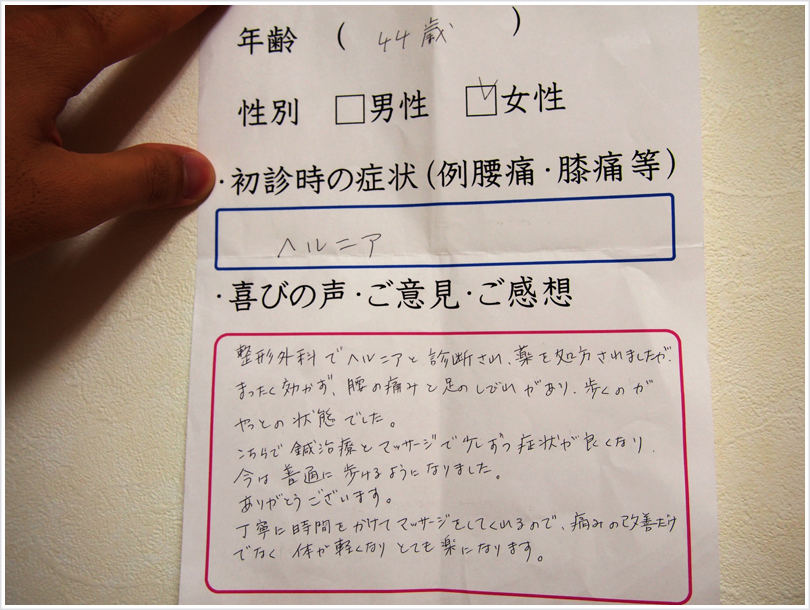 年齢 ( 44歳 )
性別 □男性 ☑女性
・初診時の症状(例腰痛・膝痛等)
ヘルニア
・喜びの声・ご意見・ご感想
整形外科でヘルニアと診断され、薬を処方されましたが、
まったく効かず、腰の痛みと足のしびれがあり、歩くのが
やっとの状態でした。
こちらで鍼治療とマッサージで少しずつ症状が良くなり、
今は普通に歩けるようになりました。
ありがとうございます。
丁寧に時間をかけてマッサージをしてくれるので、痛みの改善だけ
でなく 体が軽くなり とても楽になります。